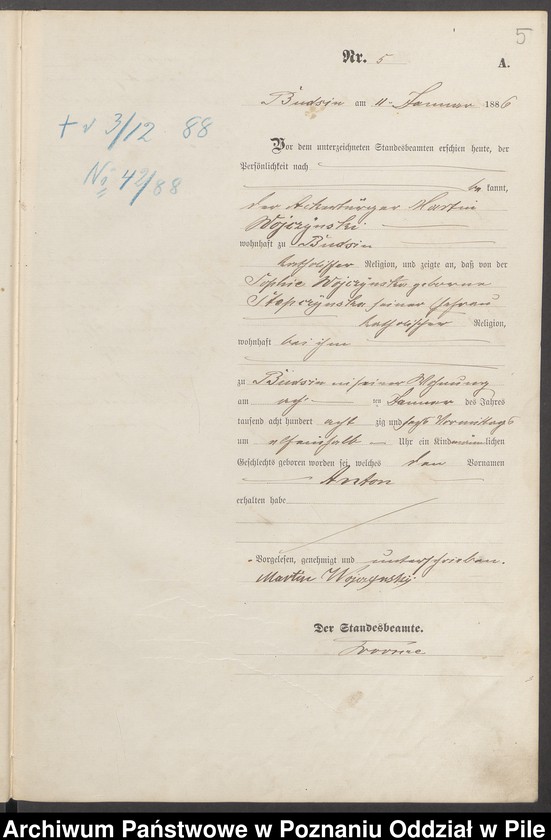 5
Nr. 5
A.
Budsin am 11. Januar 1886
+ d 3/12 88
No 42/88
Vor dem unterzeichneten Standesbeamten erschien heute, der
Persönlichkeit nach
bekannt,
der Ackerbürger Martin
Wojczynski
wohnhaft zu Budsin
katholischer Religion, und zeigte an, daß von der
Sophie Wojczynska geborene
seiner Ehefrau
katholischer Religion,
wohnhaft bei ihm
zu Budsin in seiner Wohnung
am acht ten Januar des Jahres
tausend acht hundert acht zig und sechs Vormittags
um elfeinhalb Uhr ein Kind männlichen
Geschlechts geboren worden sei, welches den Vornamen
Anton
erhalten habe
Vorgelesen, genehmigt und unterschrieben.
Martin Wojczynski
Der Standesbeamte.
Archiwum Państwowe w Poznaniu Oddział w Pile